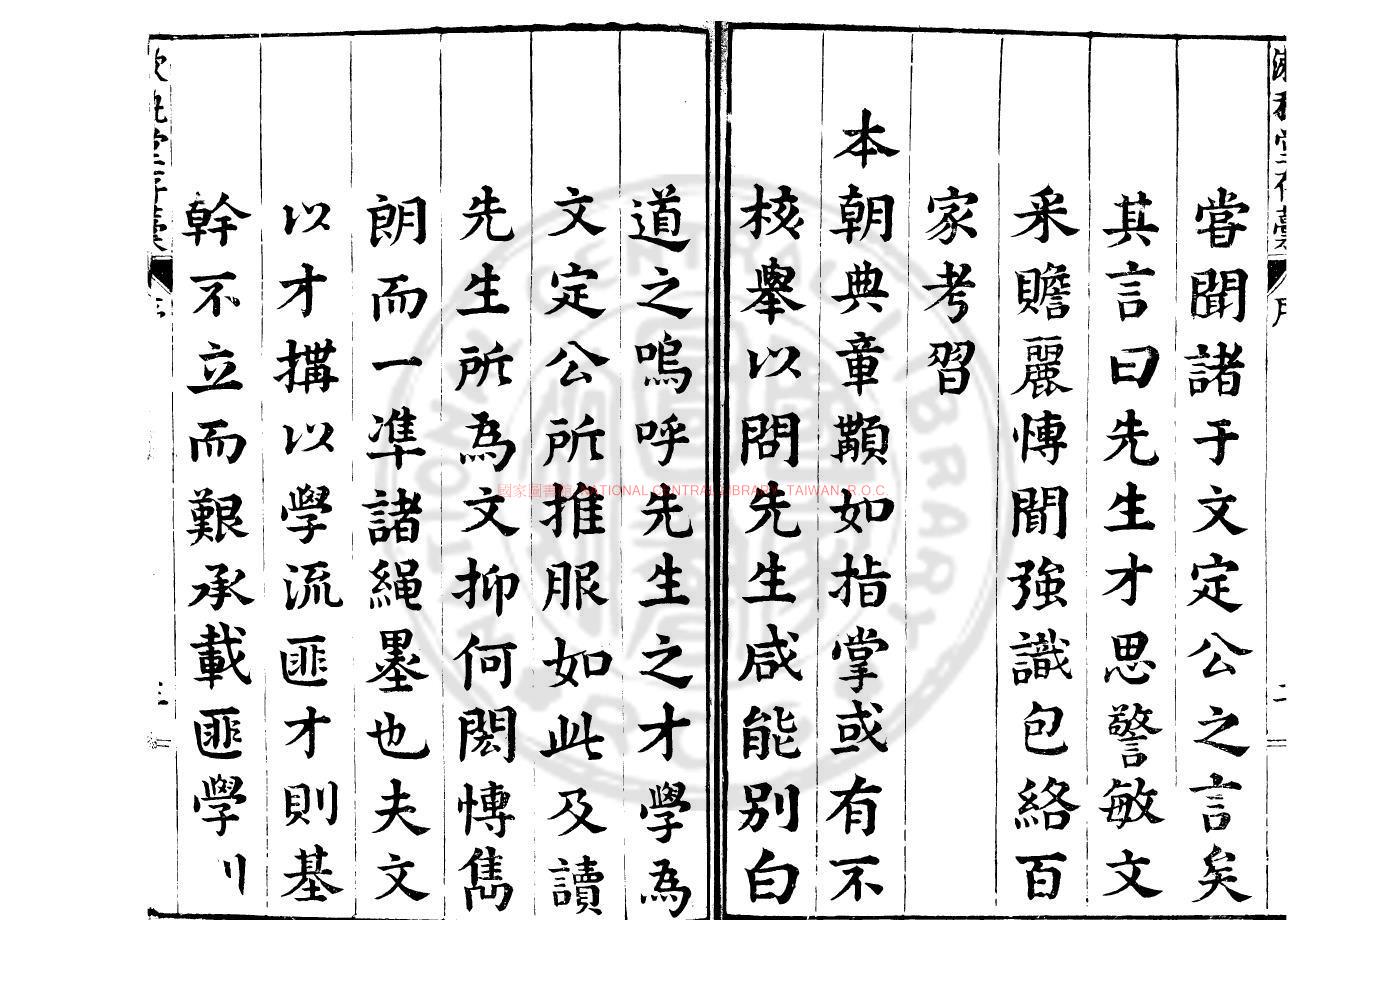 嘗聞諸于文定公之言矣
其言曰先生才思警敏文
采贍麗愽聞強識包絡百
家考習
本朝典章顯如指掌或有不
核舉以問先生咸能别白
道之嗚呼先生之才學為
文定公所推服如此及讀
先生所為文抑何閎愽雋
朗而一凖諸繩墨也夫文
以才搆以學流匪才則基
幹不立而艱承載匪學
國家圖書館 NATIONAL CENTRAL LIBRARY, TAIWAN, R.O.C.